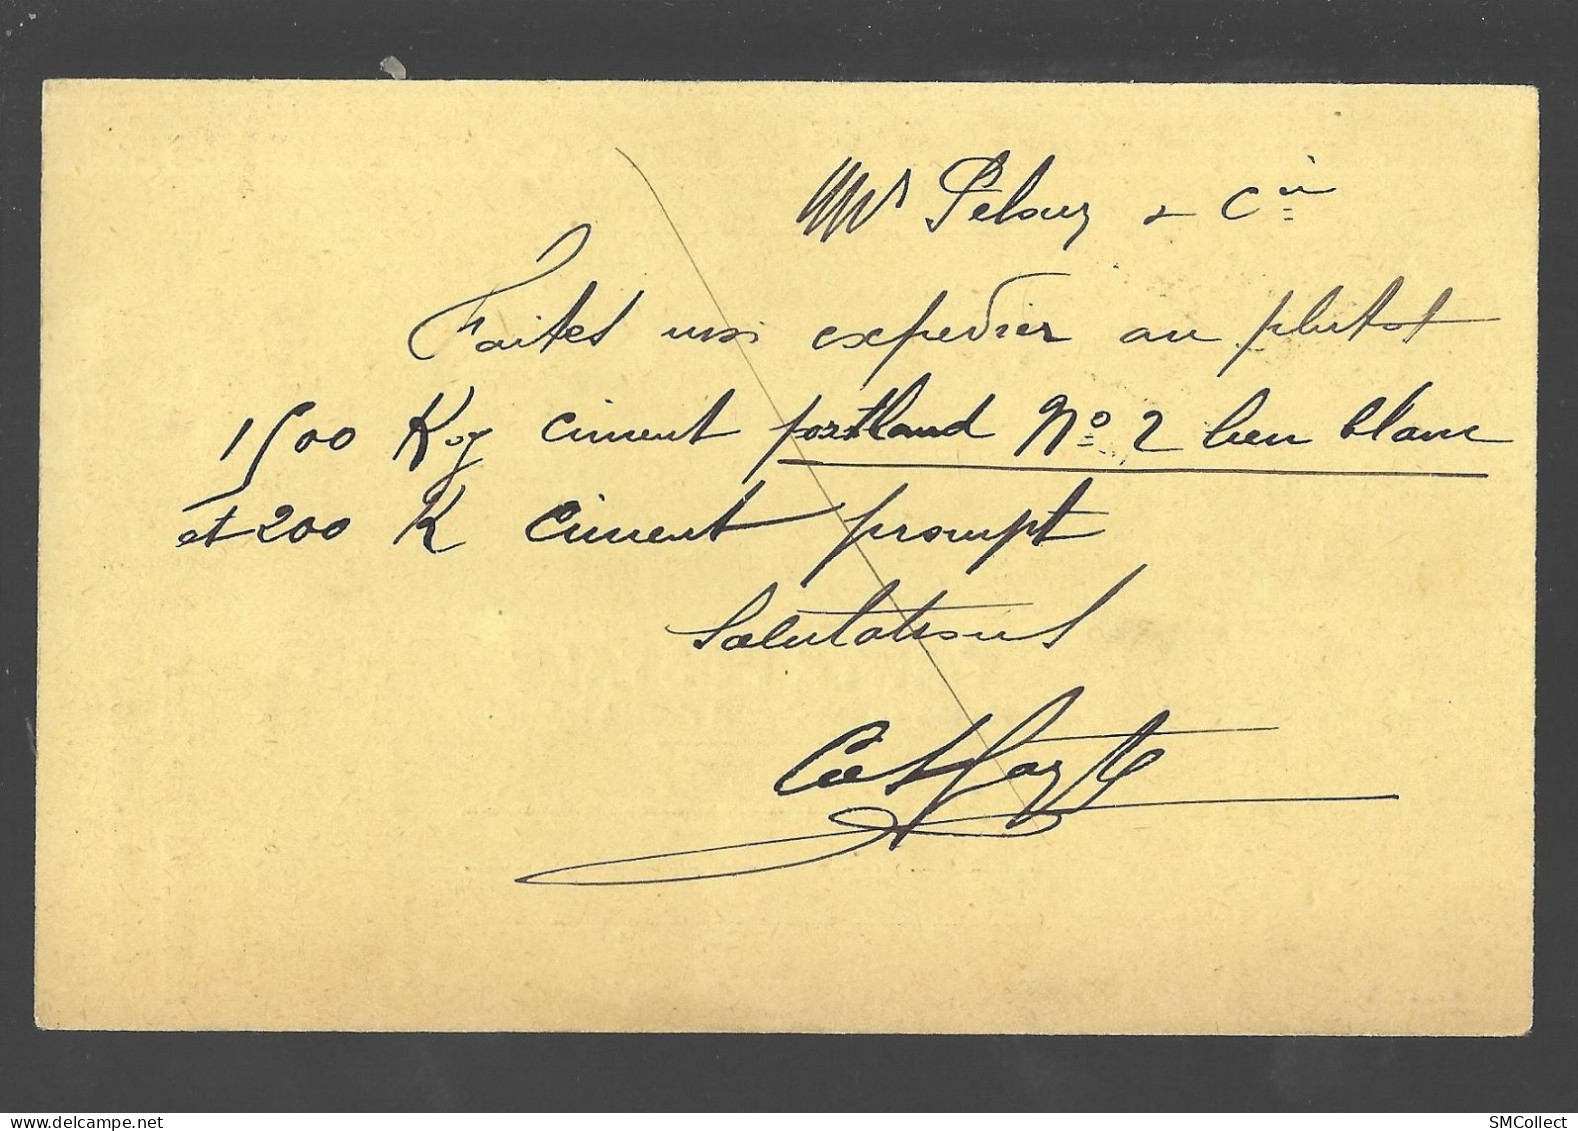 Mrs Pelouz & Cie
Faites moi expedier au plutot
1500 Kog ciment portland No 2 bien blanc
et 200 K Ciment prompt
Salutations
SMCollect
www.delcampe.net